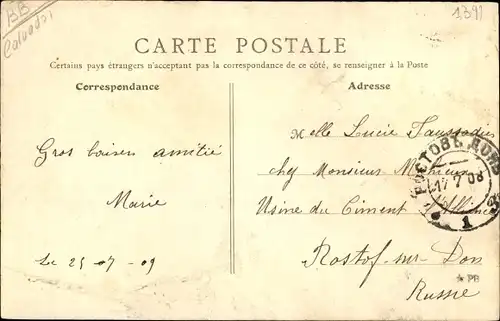 BB
Calvados
1391
CARTE POSTALE
Certains pays étrangers n'acceptant pas la correspondance de ce côté, se renseigner à la Poste
Correspondance
Adresse
Gros baisers amitié
Marie
Le 25 07 09
Melle Lucie
chez Monsieur
Usine du Ciment
Rostof-sur-Don
Russie
РОСТОВЪ ДОНЪ
17 7 08
1
* PB